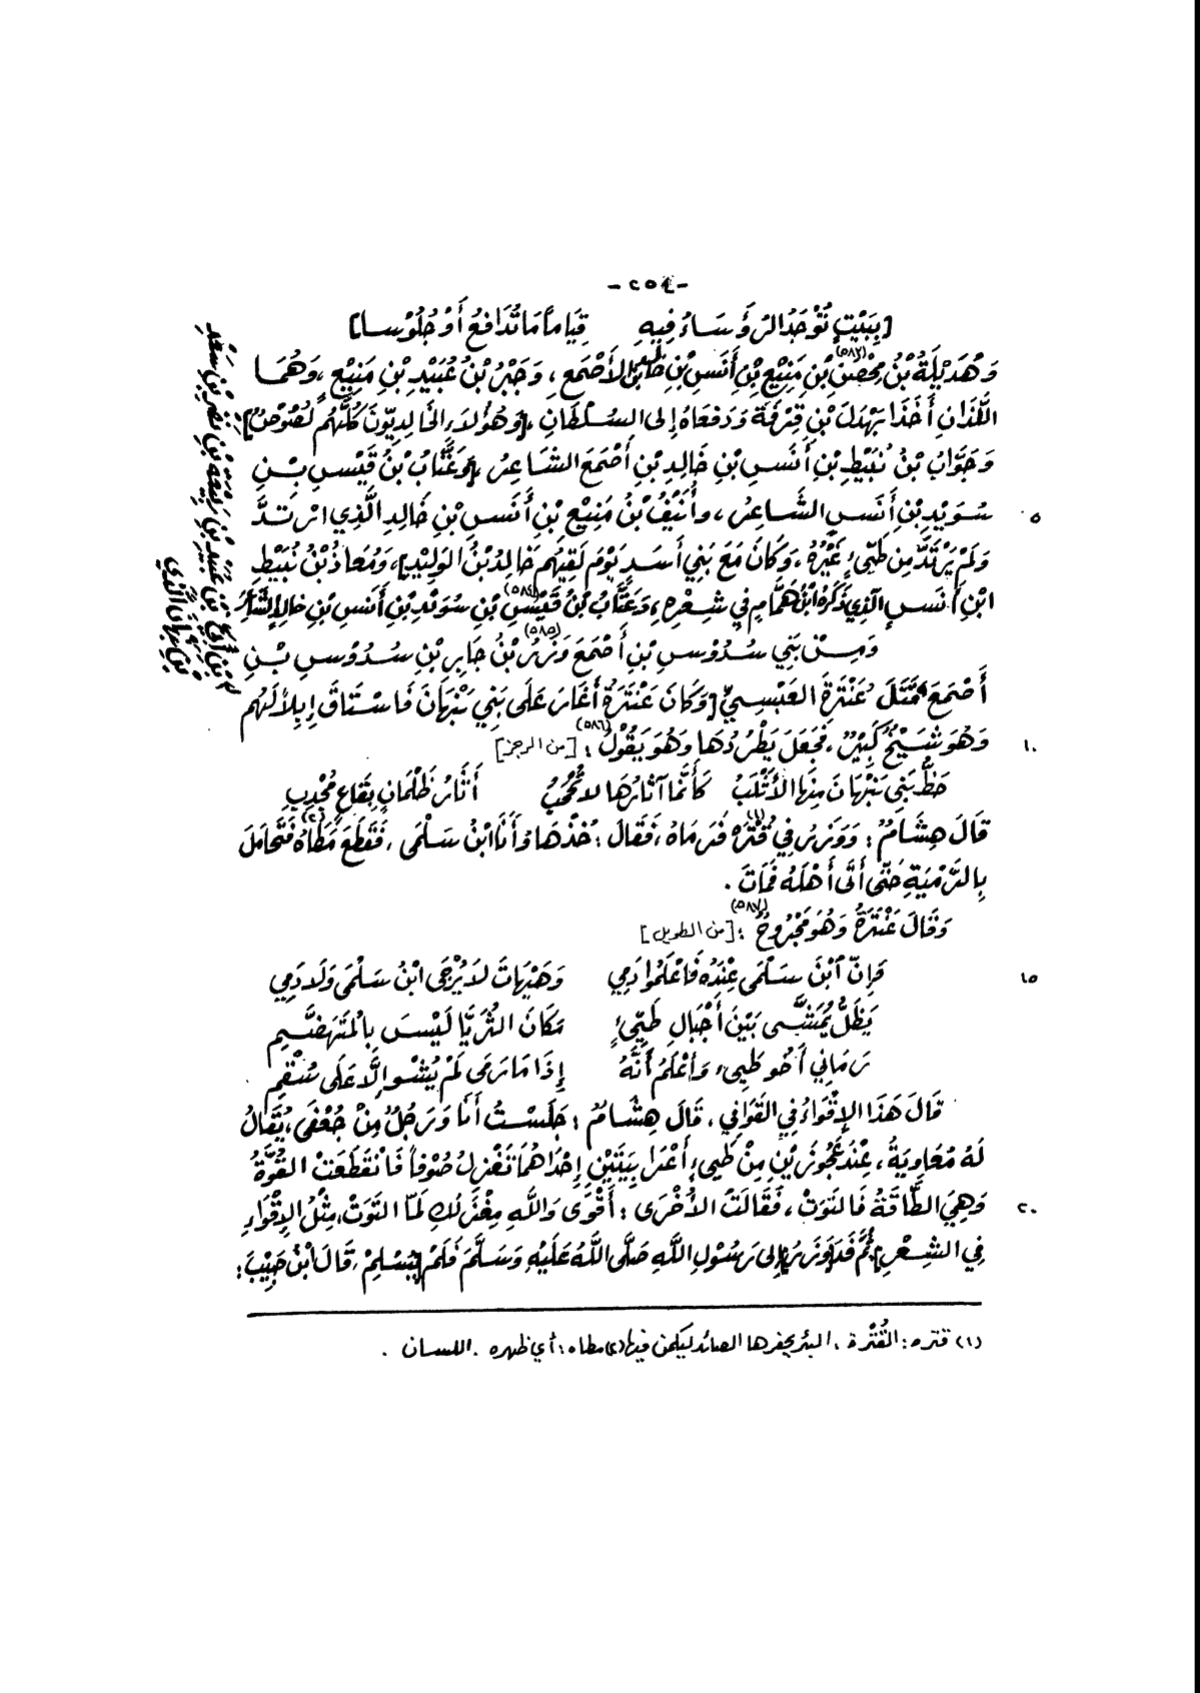 -٢٥٤-
[بِبَيْتٍ تُوْجَدُ الرُّؤَسَاءُ فِيهِ قِيَاماً مَا تُدَافِعُ أَوْ جُلُوْسا]
وَهُدَيْلَةُ بْنُ مِحْصَنِ (٥٨٣) بْنِ مَنِيْعِ بْنِ أَنَسِ بْنِ خَالِدِ بْنِ الأَصْمَعِ، وَجَبْرُ بْنُ عُبَيْدِ بْنِ مَنِيْعٍ، وَهُمَا
اللَّذَانِ أَخَذَا بَهْدَلَ بْنَ قِرْفَةَ وَدَفَعَاهُ إِلى السُلْطَانِ، [وَهُؤُلاَءِ الخَالِدِيّوْنَ كُلُّهُم لُصُوْصٌ]،
وَجَوَّابُ بْنُ نُبَيْطِ بْنِ أَنَسِ بْنِ خَالِدِ بْنِ أَصْمَعَ الشَاعِرُ، [وَعَتَّابُ بْنُ قَيْسِ بْنِ
٥ سُوَيْدِ بْنِ أَنَسٍ الشَاعِرُ، وأُنَيْفُ بْنُ مَنِيْعِ بْنِ أَنَسِ بْنِ خَالِدِ الَّذِي ارْتَدَّ
وَلَمْ يَرْتَدَّ مِن طَيِّىءٍ غَيْرُهُ، وَكَانَ مَعَ بَنِي أَسَدٍ يَوْمَ لَقِيَهُم خَالِدُ بْنُ الوَلِيْدِ]، وَمُعَاذُ بْنُ نُبَيْطِ
ابْنِ أَنَسٍ الَّذِي ذَكَرَهُ ابْنُ هَمَّامٍ فِي شِعْرِهِ، وَعَتَّابُ بْنُ قَيْسِ (٥٨٤) بْنِ سُوَيْدِ بْنِ أَنَسِ بْنِ خَالِدٍ الشَّاعِرُ
وَمِنْ بَنِي سُدُوْسِ بْنِ أَصْمَعَ وَزَرُ (٥٨٥) بْنُ جَابِرِ بْنِ سُدُوْسِ بْنِ
أَصْمَعَ قَتَلَ عَنْتَرَةَ العَبْسِيَّ [وَكَانَ عَنْتَرَةُ أَغَارَ عَلَى بَنِي نَبْهَانَ فَاسْتَاقَ إِبِلاً لَهُم
١٠ وَهُوَ شَيْخٌ كَبِيْرٌ، فَجَعَلَ يَطْرُدُهَا وَهُوَ يَقُوْلُ (٥٨٦) : [من الرجز]
حَظُّ بَنِي نَبْهَانَ مِنْهَا الأَثْلَبُ كَأَنَّمَا آثَارُهَا لاَ تُحْجَبُ أَثَارُ ظُلْمَانٍ بِقَاعٍ مُجْدِبِ
قَالَ هِشَامُ: وَوَزَرُ فِي قُتْرَةٍ (١) فَرَمَاهُ، فَقَالَ: خُذْهَا وَأَنَا ابْنُ سَلْمَى، فَقَطَعَ مَطَاهُ (٢) فَتَحَامَلَ
بِالرَّمْيَةِ حَتَّى أَتَى أَهْلَهُ فَمَاتَ.
وَقَالَ عَنْتَرَةُ وَهُوَ مَجْرُوحٌ (٥٨٧) : [من الطويل]
١٥ فَإِنّ ابْنَ سَلْمَى عِنْدَهُ فَاعْلَمُوا دَمِي وَهَيْهَاتَ لاَ يُرْجَى ابْنُ سَلْمَى وَلاَ دَمِي
يَظَلُّ يُمَشَّى بَيْنَ أَجْبَالِ طَيِّيءٍ مَكَانَ الثُّرَيَّا لَيْسَ بِالْمَتَهَضَّمِ
رَمَانِي أَخُو طَيِيء وَأَعْلَمُ أَنَّهُ إِذَا مَا رَمَى لَمْ يُشْوِ إِلَّا عَلَى مُنْقِمِ
قَالَ هَذَا الإِقْوَاءُ فِي القَوَافِي، قَالَ هِشَامُ: جَلَسْتُ أَنَا وَرَجُلٌ مِنْ جُعْفَى، يُقَالُ
لَهُ مُعَاوِيَةُ، عِنْدَ عَجُوزَيْنِ مِنْ طَيىءٍ أَعْرَابِيَتَيْنِ إِحْدَاهُمَا تَغْزِلُ صُوْفاً فَانْقَطَعَتْ القُوَّةُ
٢٠ وَهِيَ الطَّاقَةُ فَالتَوَتْ، فَقَالَتْ الأُخْرَى: أَقْوَى وَاللَّهِ مِغْزَلُكِ لَمّا التَوَتْ، مِثْلُ الإِقْوَاءِ
فِي الشِعْرِ] ثُمَّ فَدَ [وَزَرُ] إِلى رَسُوْلِ اللَّهِ صَلَّى اللَّهُ عَلَيْهِ وَسَلَّمَ فَلَمْ [يُسْلِمْ، قَالَ ابْنُ حَبِيْبَ:
(١) قتره: القُتْرة، البئر يحفرها الصائد ليكمن فيها (٢) مطاه: أي ظهره. اللسان.